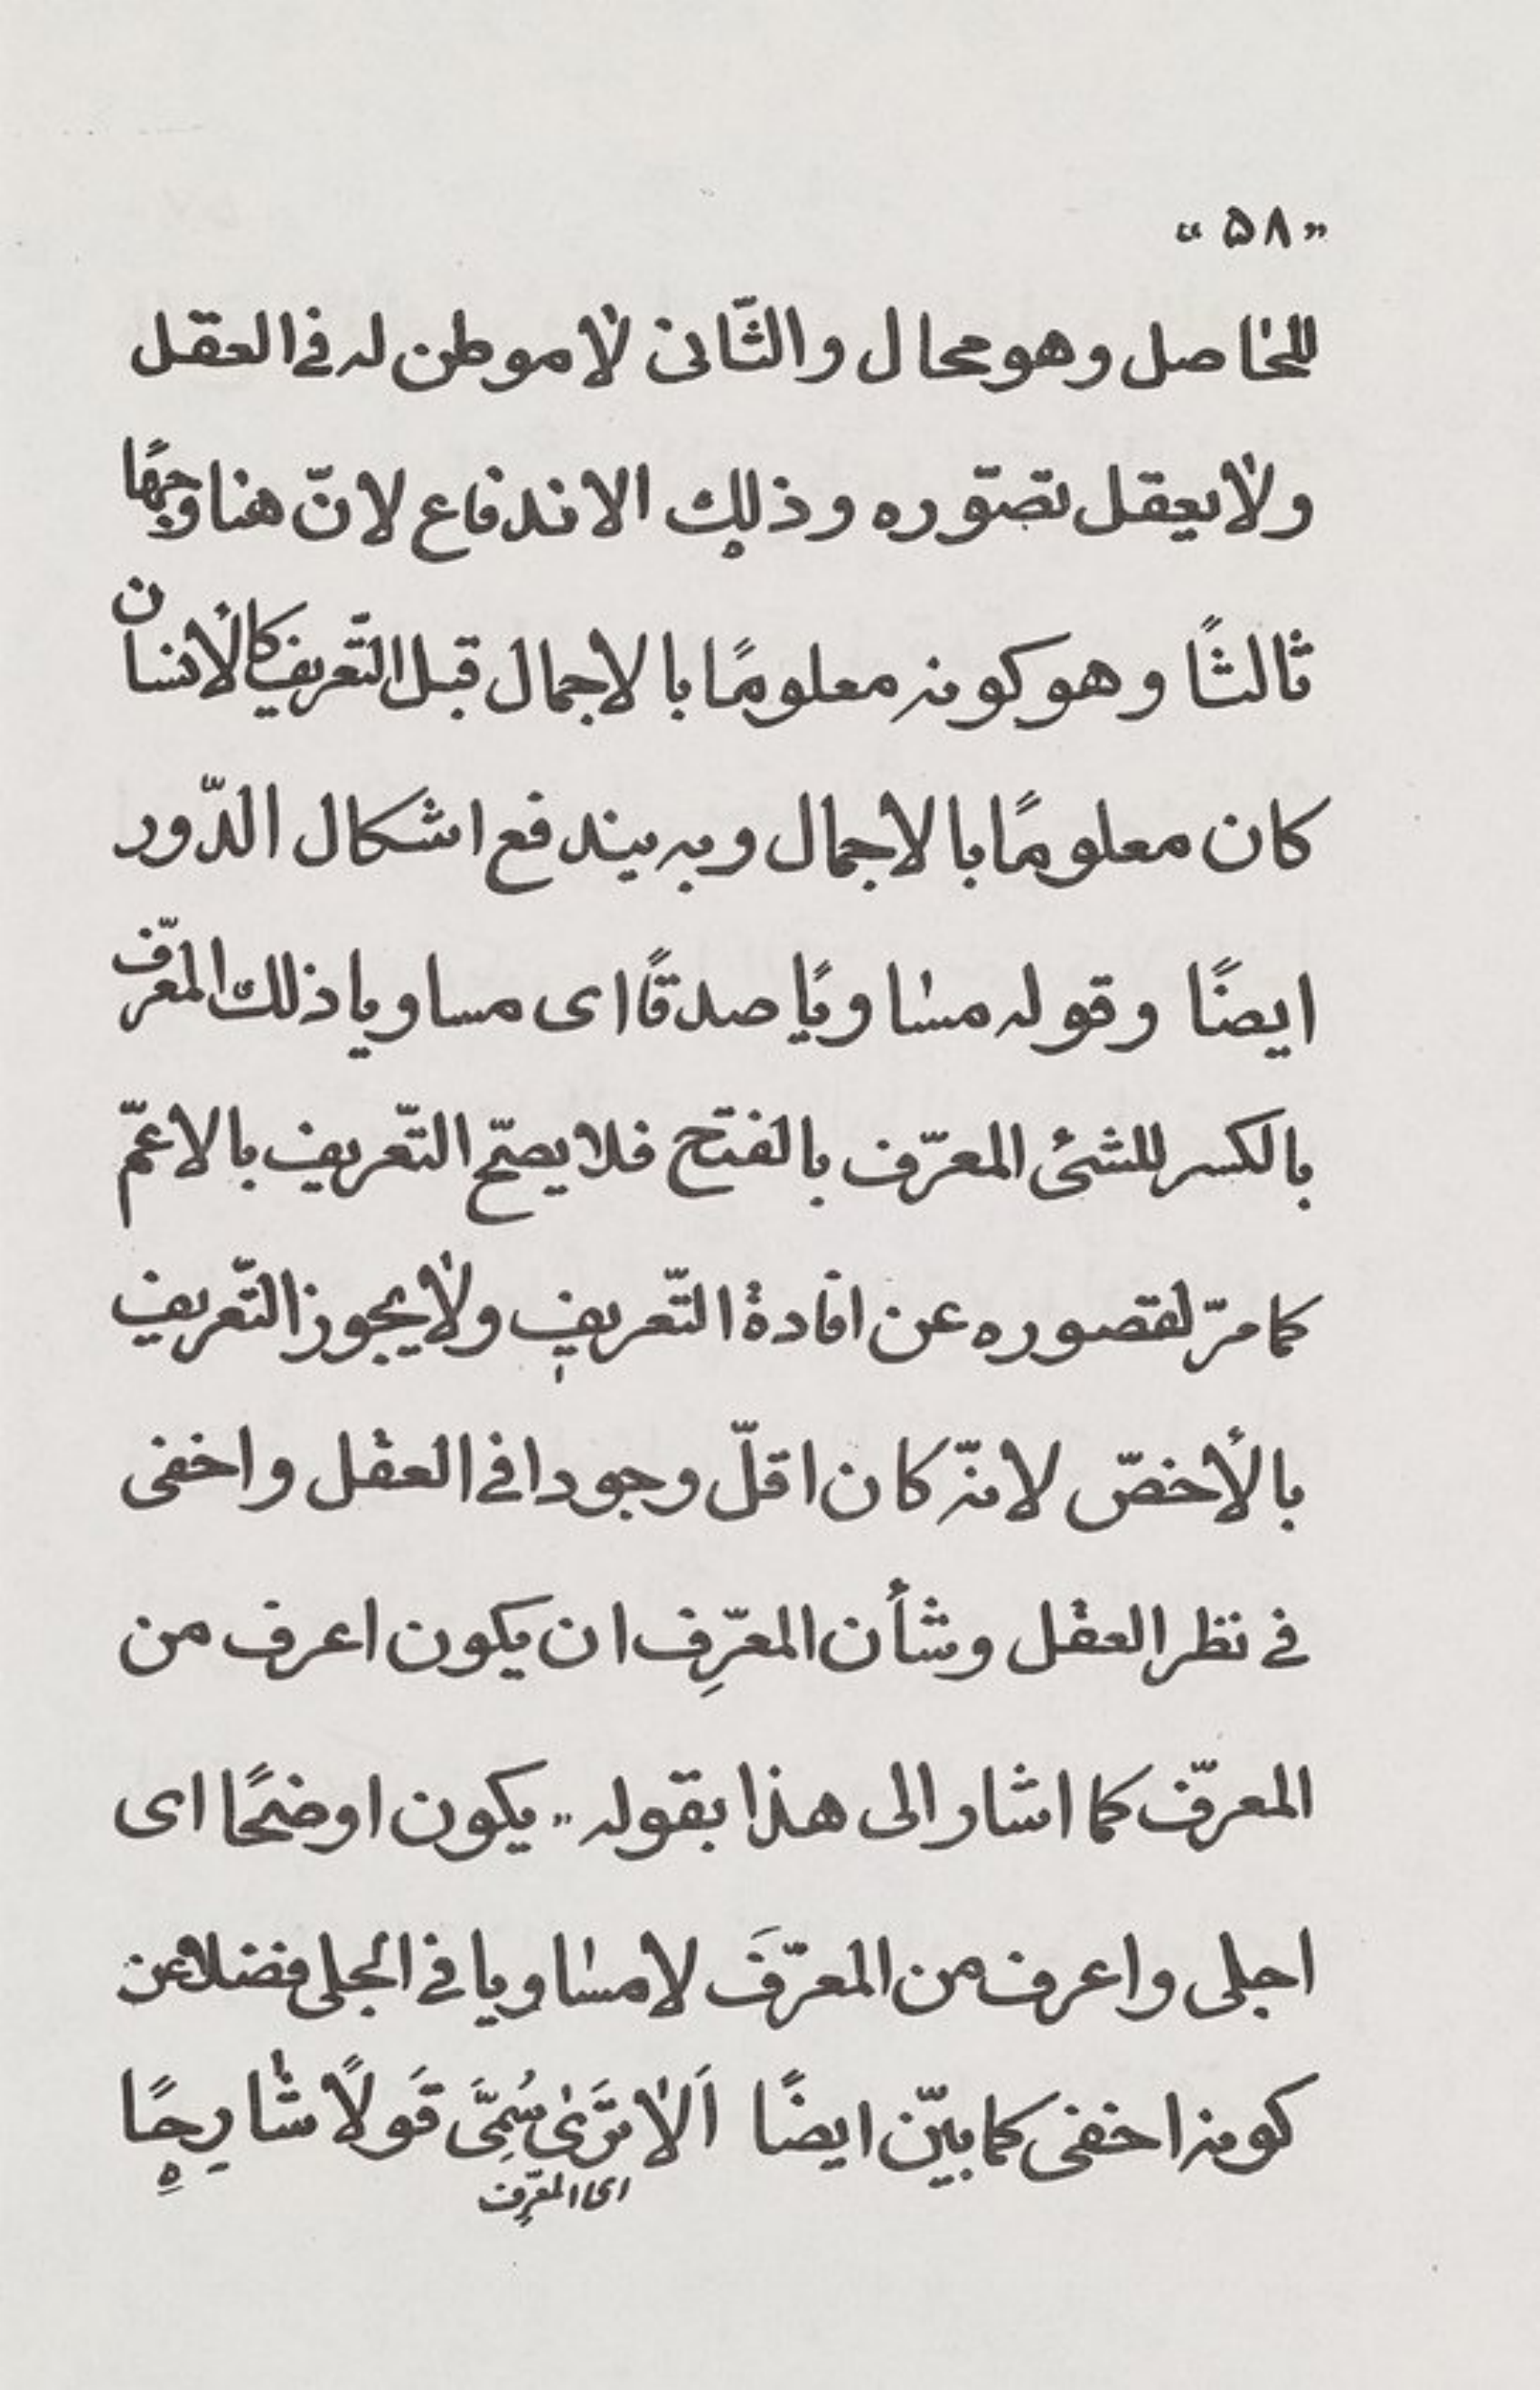 «۵۸»
للحاصل وهو محال والثّانى لا موطن له فى العقل
ولا يعقل تصوّره وذلك الاندفاع لانّ هنا وجهًا
ثالثًا وهو كونه معلومًا بالاجمال قبل التّعريف كالانسان
كان معلومًا بالاجمال وبه يندفع اشكال الدّور
ايضًا وقوله مساويًا صدقًا اى مساويا ذلك المعرّف
بالكسر للشئ المعرّف بالفتح فلا يصحّ التّعريف بالاعمّ
كما مرّ لقصوره عن افادة التّعريف ولا يجوز التّعريف
بالأخصّ لانّه كان اقلّ وجودا فى العقل واخفى
فى نظر العقل وشأن المعرّف ان يكون اعرف من
المعرّف كما اشار الى هذا بقوله ،، يكون اوضحًا اى
اجلى واعرف من المعرّفَ لا مساويا فى الجلى فضلا عن
كونه اخفى كما بيّن ايضًا اَلا تَرىٰ سُمِّىَ قَولًا شارِحًا
اى المعرّف